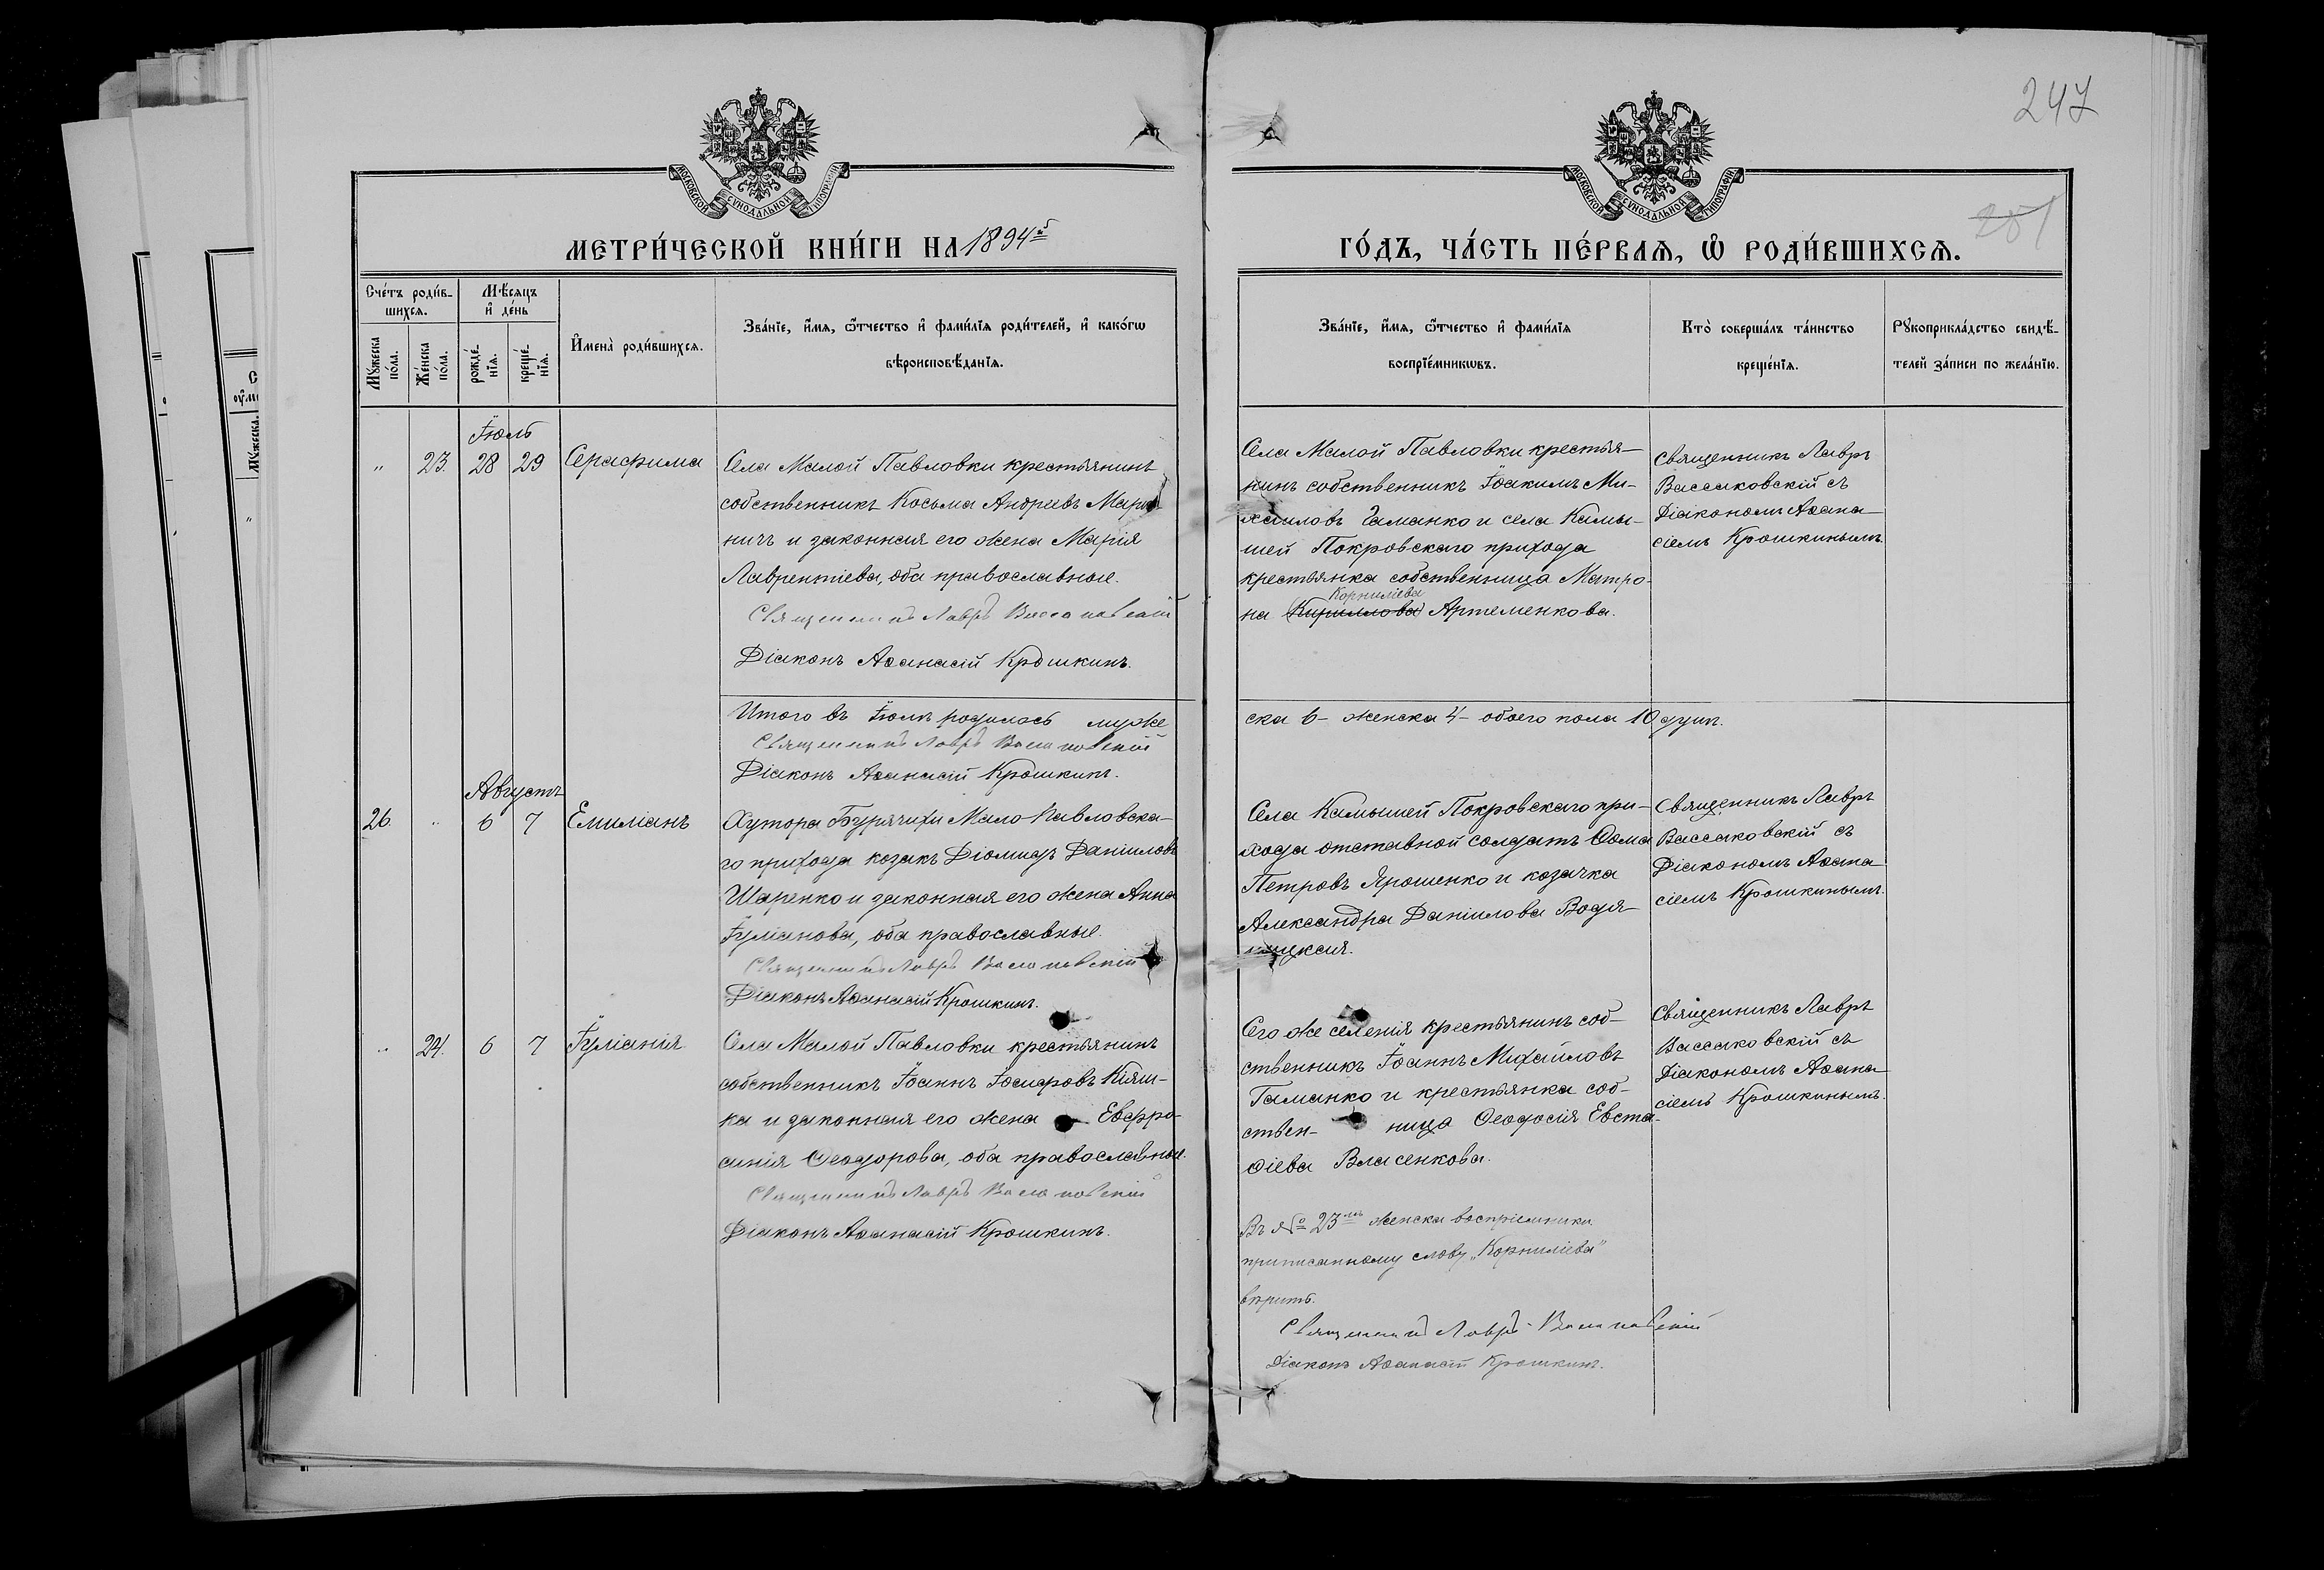 247
251
МОСКОВСКОЙ СѴНОДАЛЬНОЙ ТИПОГРАФІИ
МОСКОВСКОЙ СѴНОДАЛЬНОЙ ТИПОГРАФІИ
МЕТРИ́ЧЕСКОЙ КНИ́ГИ НА 1894й
ГО́ДЪ, ЧА́СТЬ ПЕ́РВАѦ, Ѿ РОДИ́ВШИХСѦ.
Сче́тъ роди́в-
шихсѧ.
Мѣ́сѧцъ
и҆ де́нь
Мꙋ́жеска
по́ла.
Же́нска
по́ла.
рожде́-
нїѧ.
креще́-
нїѧ.
И҆мена̀ роди́вшихсѧ.
Зва́нїе, и҆́мѧ, ѻ҆́тчество и҆ фами́лїѧ роди́телей, и҆ како́гѡ
вѣроисповѣ́данїѧ.
Зва́нїе, и҆́мѧ, ѻ҆́тчество и҆ фами́лїѧ
воспрїе́мникѡвъ.
Кто̀ соверша́лъ та́инство
креще́нїѧ.
Рꙋкоприкла́дство свидѣ́-
телей за́писи по жела́нїю.
Іюль
" 23. 28 29 Серафима
Села Малой Павловки крестьянинъ
собственникъ Косьма Андреевъ
ничъ и законная его жена Марія
Лаврентіева, оба православные.
Священникъ Лавръ Вассаковскій
Діаконъ Аѳанасій Крошкинъ.
Села Малой Павловки крестья-
нинъ собственникъ Іоакимъ Ми-
хаиловъ Гаманко и села Камы-
шей Покровскаго прихода
крестьянка собственница Матро-
Корниліева
на (Кириллова) Артеменкова.
Священникъ Лавръ
Вассаковскій съ
Діакономъ Аѳана-
сіемъ Крошкинымъ.
Итого въ Іюлѣ родилось муже
ска 6 - женска 4 - обоего пола 10 душъ.
Священникъ Лавръ Вассаковскій
Діаконъ Аѳанасій Крошкинъ.
Августъ
26. " 6 7 Емиліанъ
Хутора Бурячихи Мало-Павловска-
го прихода козакъ Діомидъ Даніиловъ
Шаренко и законная его жена Анна
Іуліанова, оба православные.
Священникъ Лавръ Вассаковскій
Діаконъ Аѳанасій Крошкинъ.
Села Камышей Покровскаго при-
хода отставной солдатъ Ѳома
Петровъ Ярошенко и козачка
Александра Даніилова Водя-
ницкая.
Священникъ Лавръ
Вассаковскій съ
Діакономъ Аѳана-
сіемъ Крошкинымъ.
" 24. 6 7 Іуліанія.
Села Малой Павловки крестьянинъ
собственникъ Іоаннъ Іосифовъ Кіяш-
ка и законная его жена Евфро-
синія Ѳеодорова, оба православные.
Священникъ Лавръ Вассаковскій
Діаконъ Аѳанасій Крошкинъ.
Сего же селенія крестьянинъ соб-
ственникъ Іоаннъ Михайловъ
Гаманко и крестьянка соб-
ствен- ница Ѳеодосія Евста-
ѳіева Власенкова.
Священникъ Лавръ
Вассаковскій съ
Діакономъ Аѳана-
сіемъ Крошкинымъ.
Въ № 23мъ женска воспріемники
приписанному слову „Корниліева"
вѣрить.
Священникъ Лавръ Вассаковскій
Діаконъ Аѳанасій Крошкинъ.